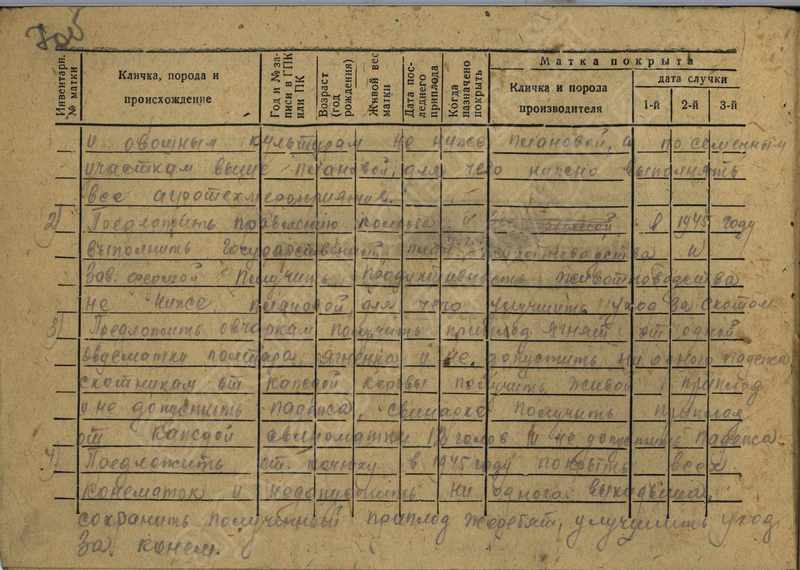 Инвентарн. № матки
Кличка, порода и происхождение
Год и № записи в ГПК или ПК
Возраст (год рождения)
Живой вес матки
Дата последнего приплода
Когда назначено покрыть
Матка покрыта
Кличка и порода производителя
дата случки
1-й 2-й 3-й
и овощным культурам не ниже плановой, а по семенным
участкам выше плановой, для чего нужно выполнять
все агротехмероприятия.
2) Предложить правлению колхоза и в 1945 году
выполнить государственный план животноводства и
Зав. фермой Получить продуктивность животноводства
не ниже плановой, для чего улучшить уход за скотом.
3) Предложить овчаркам получить приплод ягнят от одной
овцематки полтора ягнёнка и не допустить ни одного падежа
скотникам от каждой коровы получить живой приплод
и не допустить падежа, свинарке получить приплод
от каждой свиноматки голов и не допустить падежа.
4) Предложить ст. конюху в 1945 году покрыть всех
конематок и недопустить ни одного выкидыша,
сохранить полученный приплод жеребят, улучшить уход
За конем.